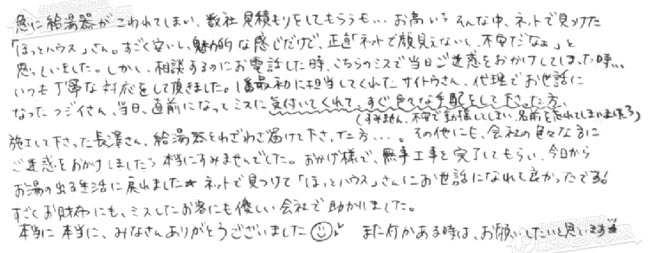 急に給湯器がこわれてしまい、数社見積もりをしてもらうも…お高い💧そんな中、ネットで見つけた
「ほっとハウス」さん。すごく安いし、魅力的な感じだけど、正直「ネットで顔見えないし、不安だなぁ」と
思っていました。しかし、相談するのにお電話した時、こちらのミスで当日ご迷惑をおかけしてしまった時…
いつも丁寧な対応をして頂きました。1番最初に担当してくれたサイトウさん、代理でお世話に
なったフジイさん、当日、直前になってミスに気付いてくれて、すぐ色々な手配をして下さった方
(すみません、不安で動揺してしまい、名前を忘れてしまいました💧)
施工して下さった長澤さん、給湯器をわざわざ届けて下さった方…。その他にも、会社の色々な方に
ご迷惑をおかけしました💧本当にすみませんでした。おかげ様で、無事工事を完了してもらい、今日から
お湯の出る生活に戻れました★ネットで見つけて「ほっとハウス」さんにお世話になれて良かったです!
すごくお財布にも、ミスしたお客にも優しい会社で助かりました。
本当に本当に、みなさんありがとうございました また何かある時は、お願いしたいと思います